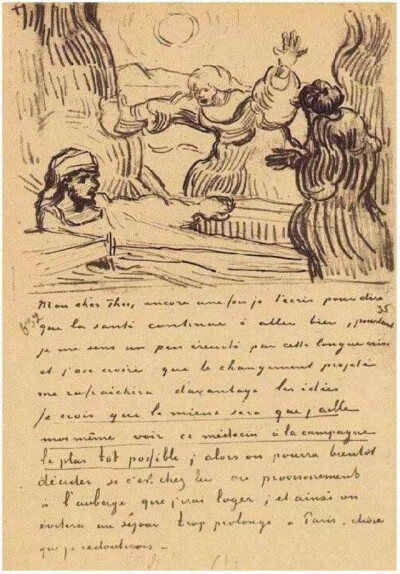 Mon cher Theo, encore une fois je t'écris pour dire
35
632
que la santé continue à aller bien, pourtant
je me sens un peu éreinté par cette longue crise
et j'ose croire que le changement projeté
me rafraichira davantage les idées
Je crois que le mieux sera que j'aille
moi même voir ce médecin à la campagne
le plus tôt possible; alors on pourra bientôt
décider si c'est chez lui ou provisoirement
à l'auberge que j'irai loger; et ainsi on
évitera un séjour trop prolongé à Paris, chose
que je redouterais. –